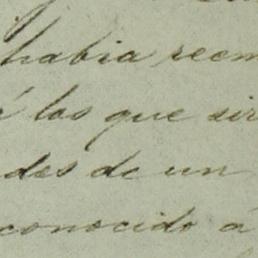 habia reem
á los que sir
des de un
conocido á